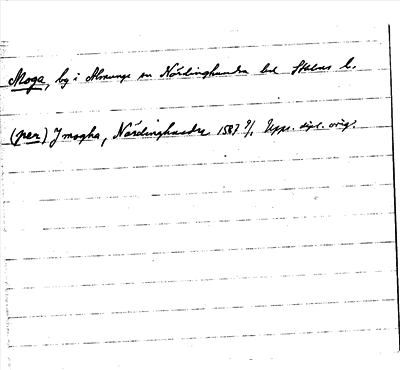 Moga, by i Almunge sn Närdinghundra hd Sthlms l.
(per) J mogha, Närdinghundre 1587 9/1 Upps. dipl. orig.